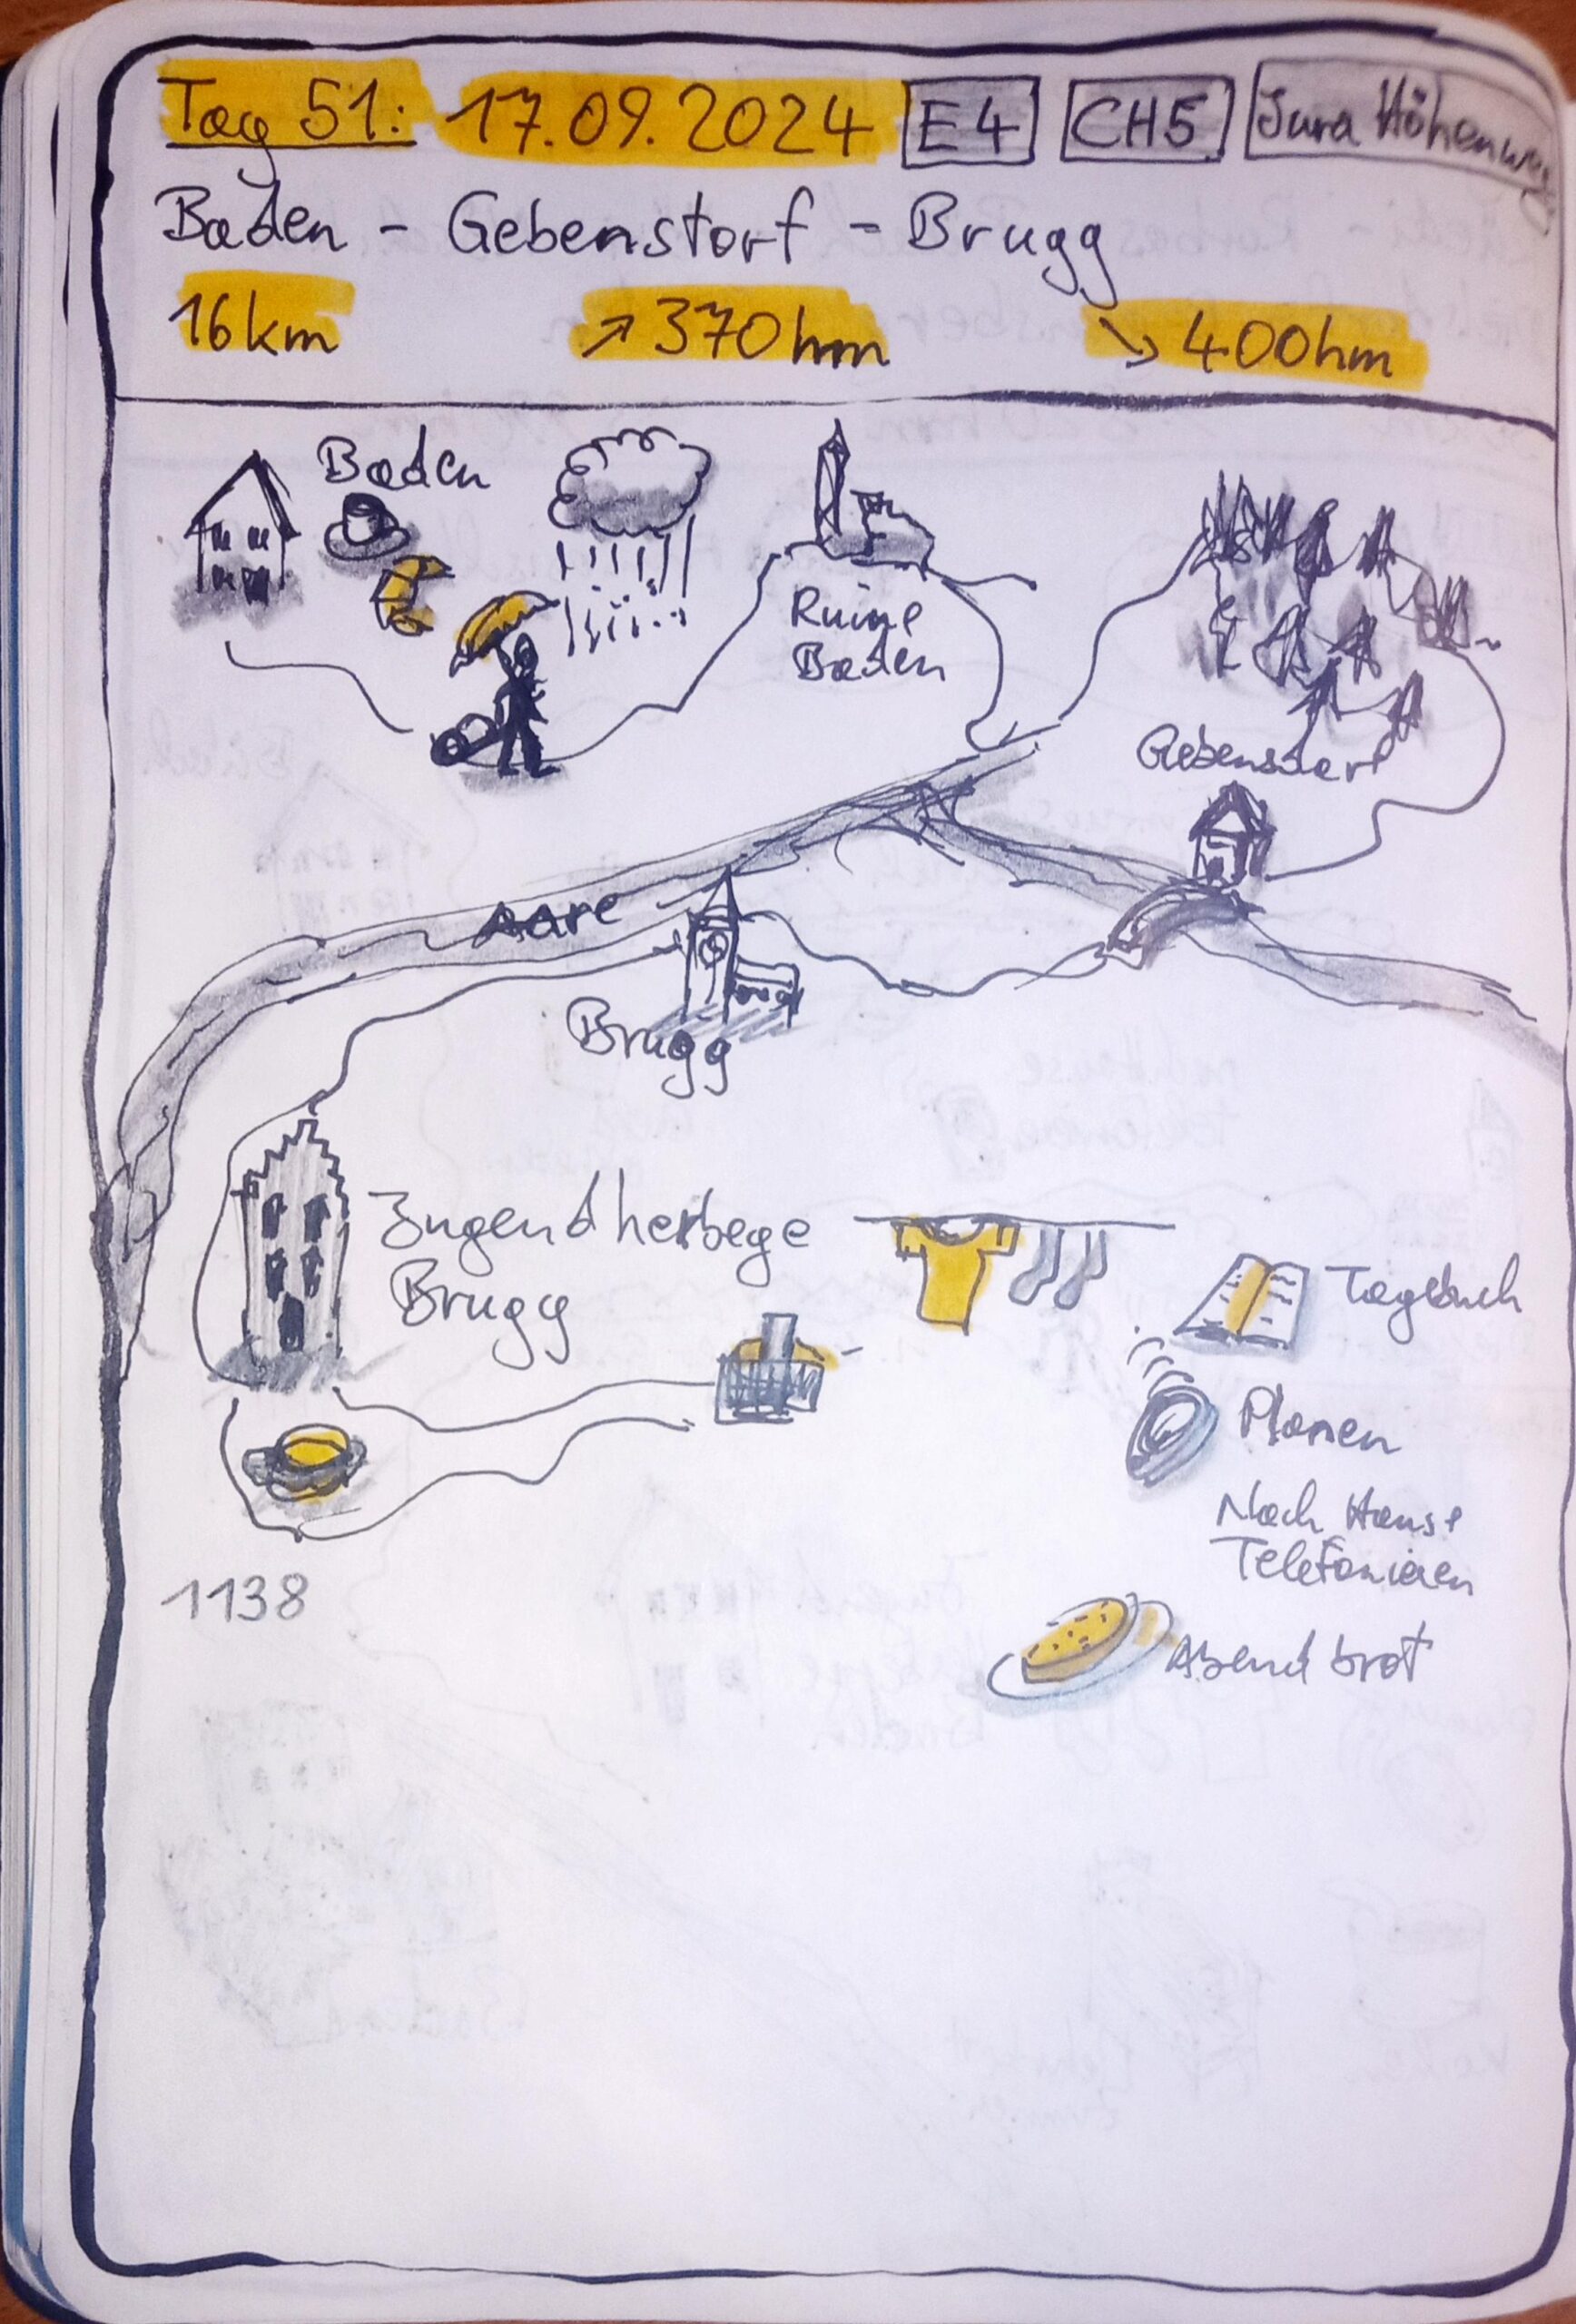 Tag 51: 17.09.2024 E4 CH5 Jura Höhenweg
Baden - Gebenstorf - Brugg
16km ↗ 370hm ↘ 400hm
Baden
Ruine
Baden
Gebensdorf
Aare
Brugg
Jugendherbege
Brugg
Tagebuch
Planen
Nach Hause
Telefonieren
1138
Abendbrot